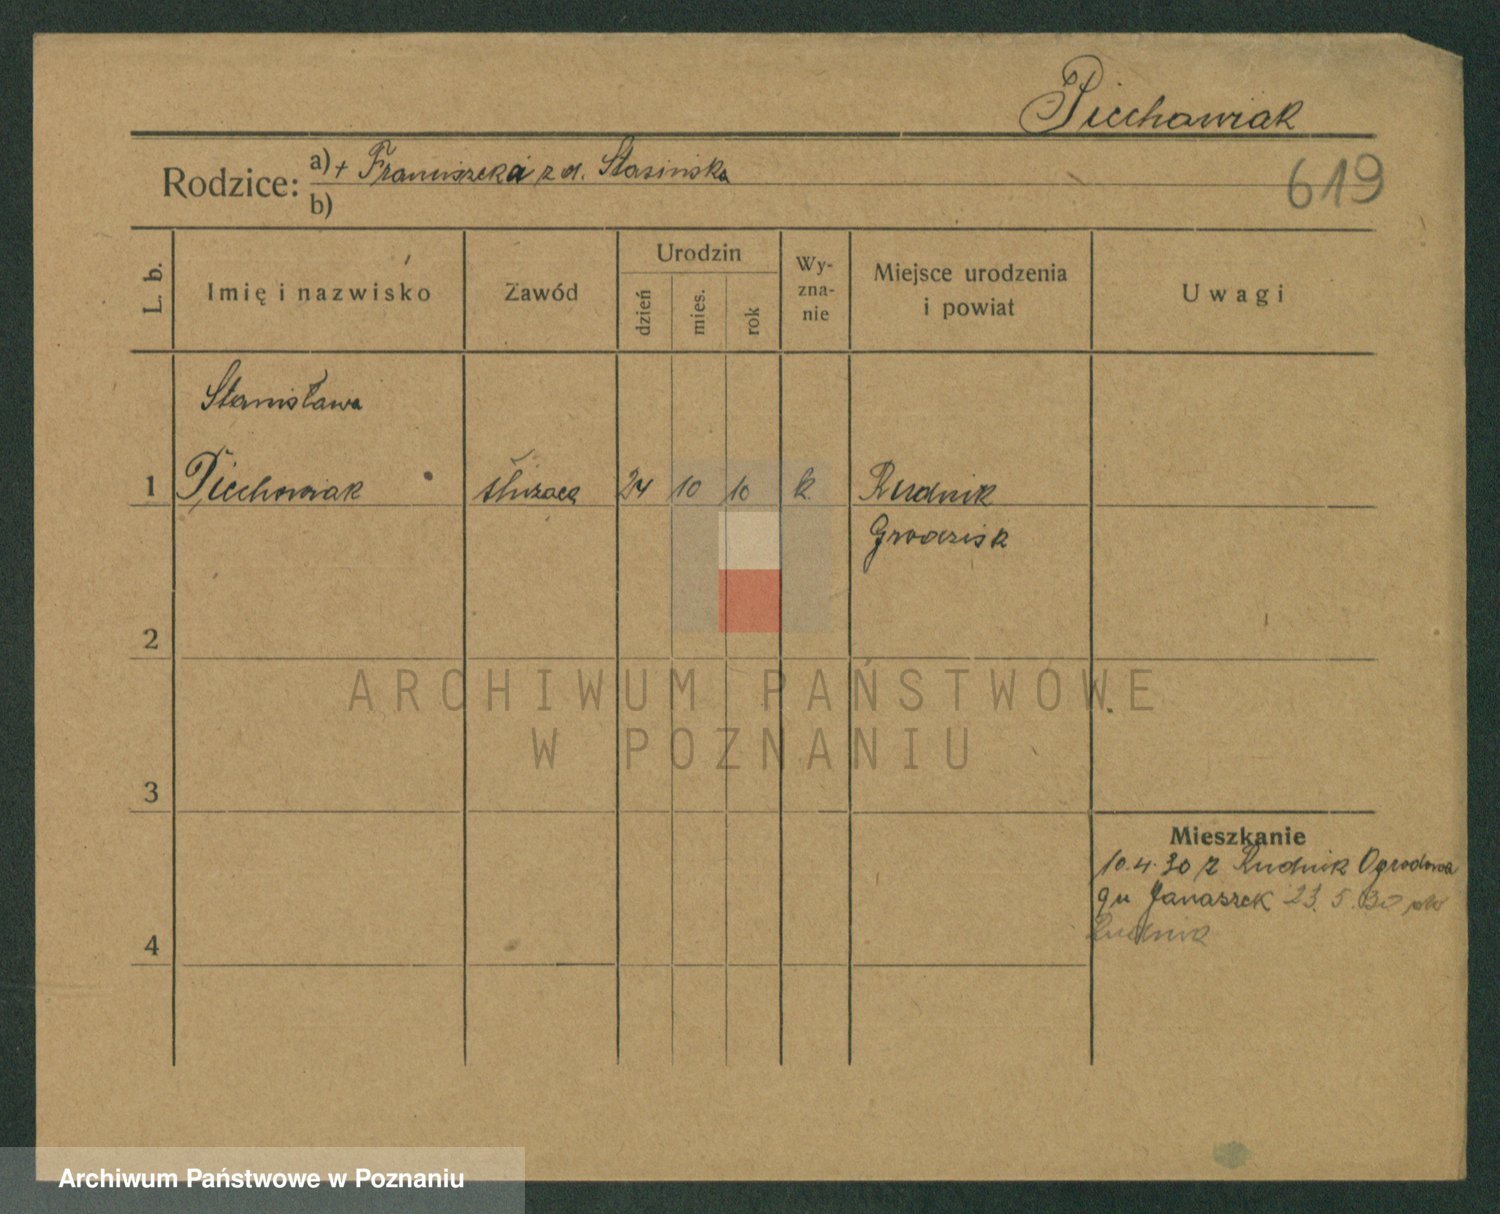 Piechowiak
619
Rodzice: a) + Franciszka z d. Stasińska
b)
L. b.
Imię i nazwisko
Zawód
Urodzin
dzień
mies.
rok
Wy-
zna-
nie
Miejsce urodzenia
i powiat
Uwagi
Stanisława
1 Piechowiak służąca 24 10 10 k. Rudnik
Grodzisk
2
3
4
Mieszkanie
10.4.30 z Rudnik Ogrodowa
9 u Janaszek 23.5.30 do
Rudnik
ARCHIWUM PAŃSTWOWE
W POZNANIU
Archiwum Państwowe w Poznaniu